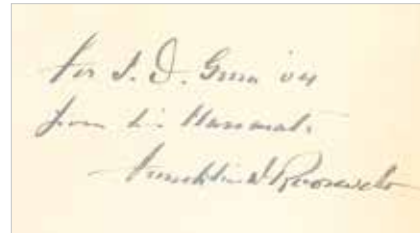 for J. D. Greene '04
from his Classmate
Franklin D Roosevelt